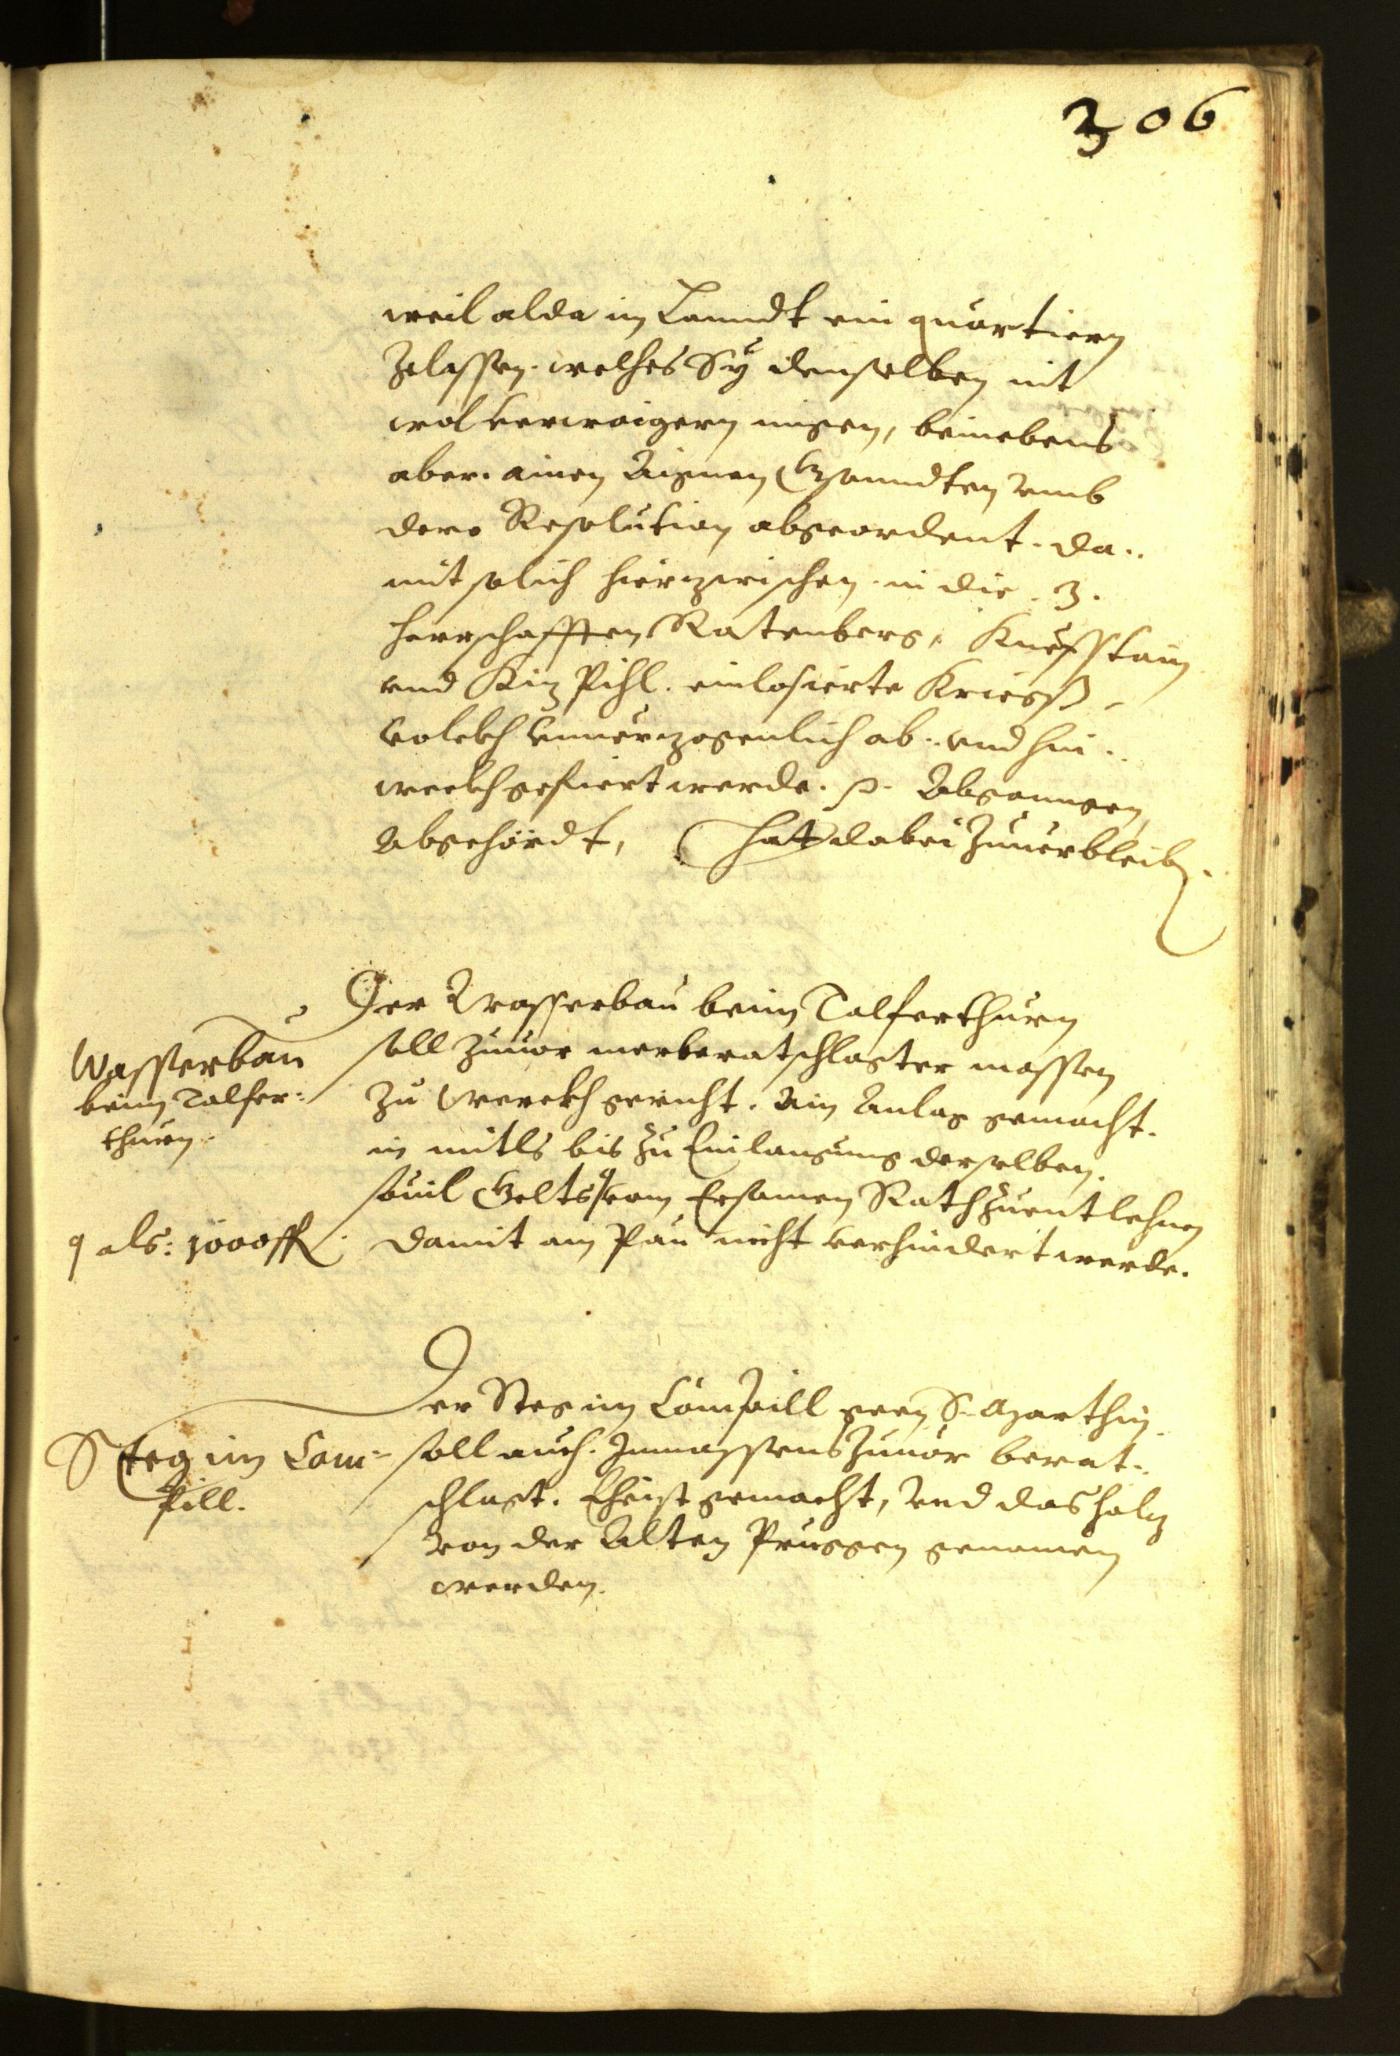 306
weil alda im Lanndt ein quartiern
Zelassen. welches Sÿ denselben nit
wol verwaigern migen, beinebens
aber. ainen Aignen Gsanndten umb
dero Resolution abgeordent. da..
mit solich hierzwischen in die .3.
herrschafften Ratenberg, Kuefstain
und Kizpihl. einlosierte Kriegß
volckh unuerzogenlich ab.. und hin..
weckh gefiert werde. p. Abgangen,
Abgehördt, hat dabei Zuuerbleib.
Wasserbau
beim Talfer:
thurn.
Der Wasserbau beim Talferthurn
soll Zuuor merberatschlagter massen
Zu Werckh gericht. Ain Anlag gemacht.
in mitls bis Zu Einlangung derselben.
souil Gelts vom Ersamen Rath Zuentlehnen
damit am Pau nicht verhindert werde.
als: 1000 fl
Der Steg im Campill geen S. Marthin.
Steg im Cam=
pill.
soll auch. Inmassens Zuuor berat..
schlagt. Ehrist gemacht, und das holz
von der Alten Pruggen genomen
werden.